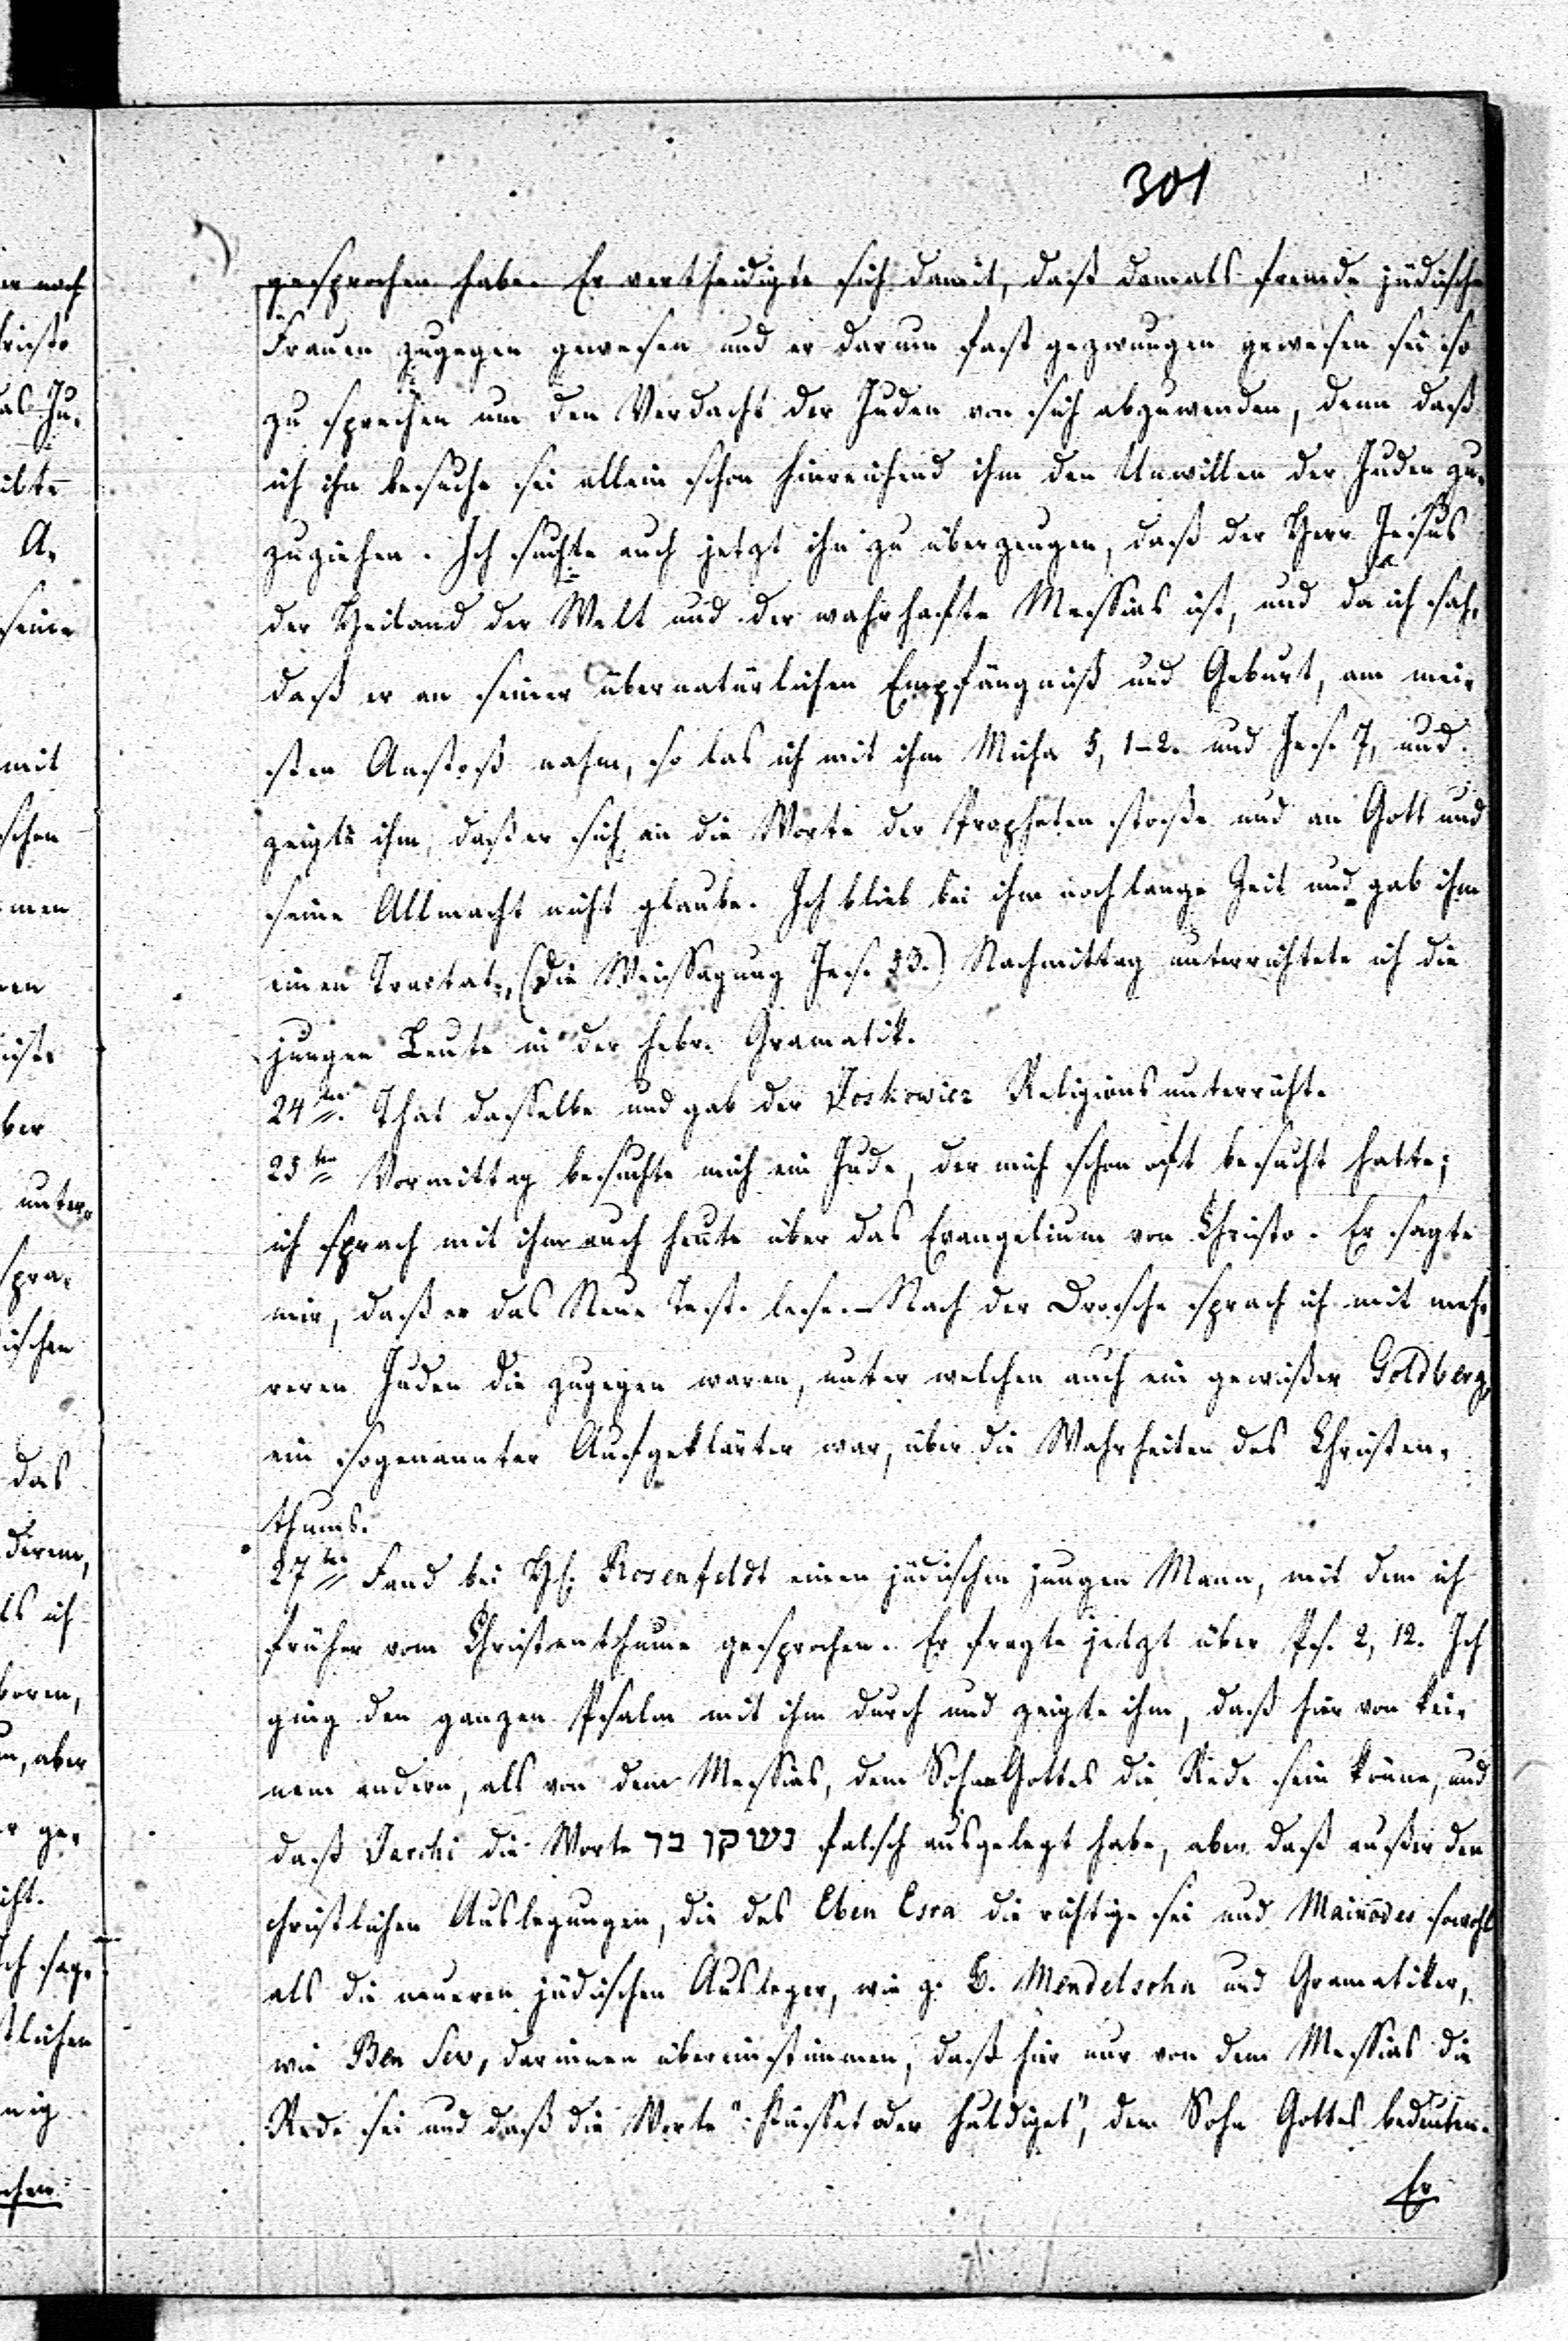 301
gesprochen habe. Er vertheidigte sich damit, daß damals fremde jüdische
Frauen zugegen gewesen und er darum fast gezwungen gewesen sei so
zu sprechen um den Verdacht der Juden von sich abzuwenden, denn daß
ich ihn besuche sei allein schon hinreichend ihm den Unwillen der Juden zu-
zuziehen. Ich suchte auch jetzt ihn zu überzeugen, daß der Herr Jesus
der Heiland der Welt und der wahrhafte Messias ist, und da ich sah,
daß er an seiner übernatürlichen Empfängniß und Geburt, am mei-
sten Anstoß nahm, so las ich mit ihm Micha 5, 1-2. und Jes. 7, und
zeigte ihm, daß er sich an die Worte der Propheten stoße und an Gott und
seine Allmacht nicht glaube. Ich blieb bei ihm noch lange Zeit und gab ihm
einen Tractat, (die Weissagung Jes. 53.) Nachmittag unterrichtete ich die
jungen Leute in der hebr. Gramatik.
24ten That dasselbe und gab der Joskowicz Religionsunterricht.
25ten Vormittag besuchte mich ein Jude, der mich schon oft besucht hatte;
ich sprach mit ihm auch heute über das Evangelium von Christo. Er sagte
mir, daß er das Neue Test. lese. – Nach der Drosche sprach ich mit meh-
reren Juden die zugegen waren, unter welchen auch ein gewißer Goldberg,
ein sogenannter Aufgeklärter war, über die Wahrheiten des Christen-
thums.
27ten Fand bei H: Rosenfeldt einen jüdischen jungen Mann, mit dem ich
früher vom Christenthume gesprochen. Er fragte jetzt über Ps. 2, 12. Ich
ging den ganzen Psalm mit ihm durch und zeigte ihm, daß hier von kei-
nem andern, als von dem Messias, dem Sohne Gottes die Rede sein könne, und
daß Jarchi die Worte נשקו בר falsch ausgelegt habe, aber daß außer den
christlichen Auslegungen, die des Eben Esra die richtige sei und Mainodes sowohl
als die neueren jüdischen Ausleger, wie z. B. Mendelsohn und Gramatiker,
wie Ben Sev, darinnen übereinstimmen, daß hier nur von dem Messias die
Rede sei und daß die Worte ": küsset oder huldiget", den Sohn Gottes bedeuten.
Er